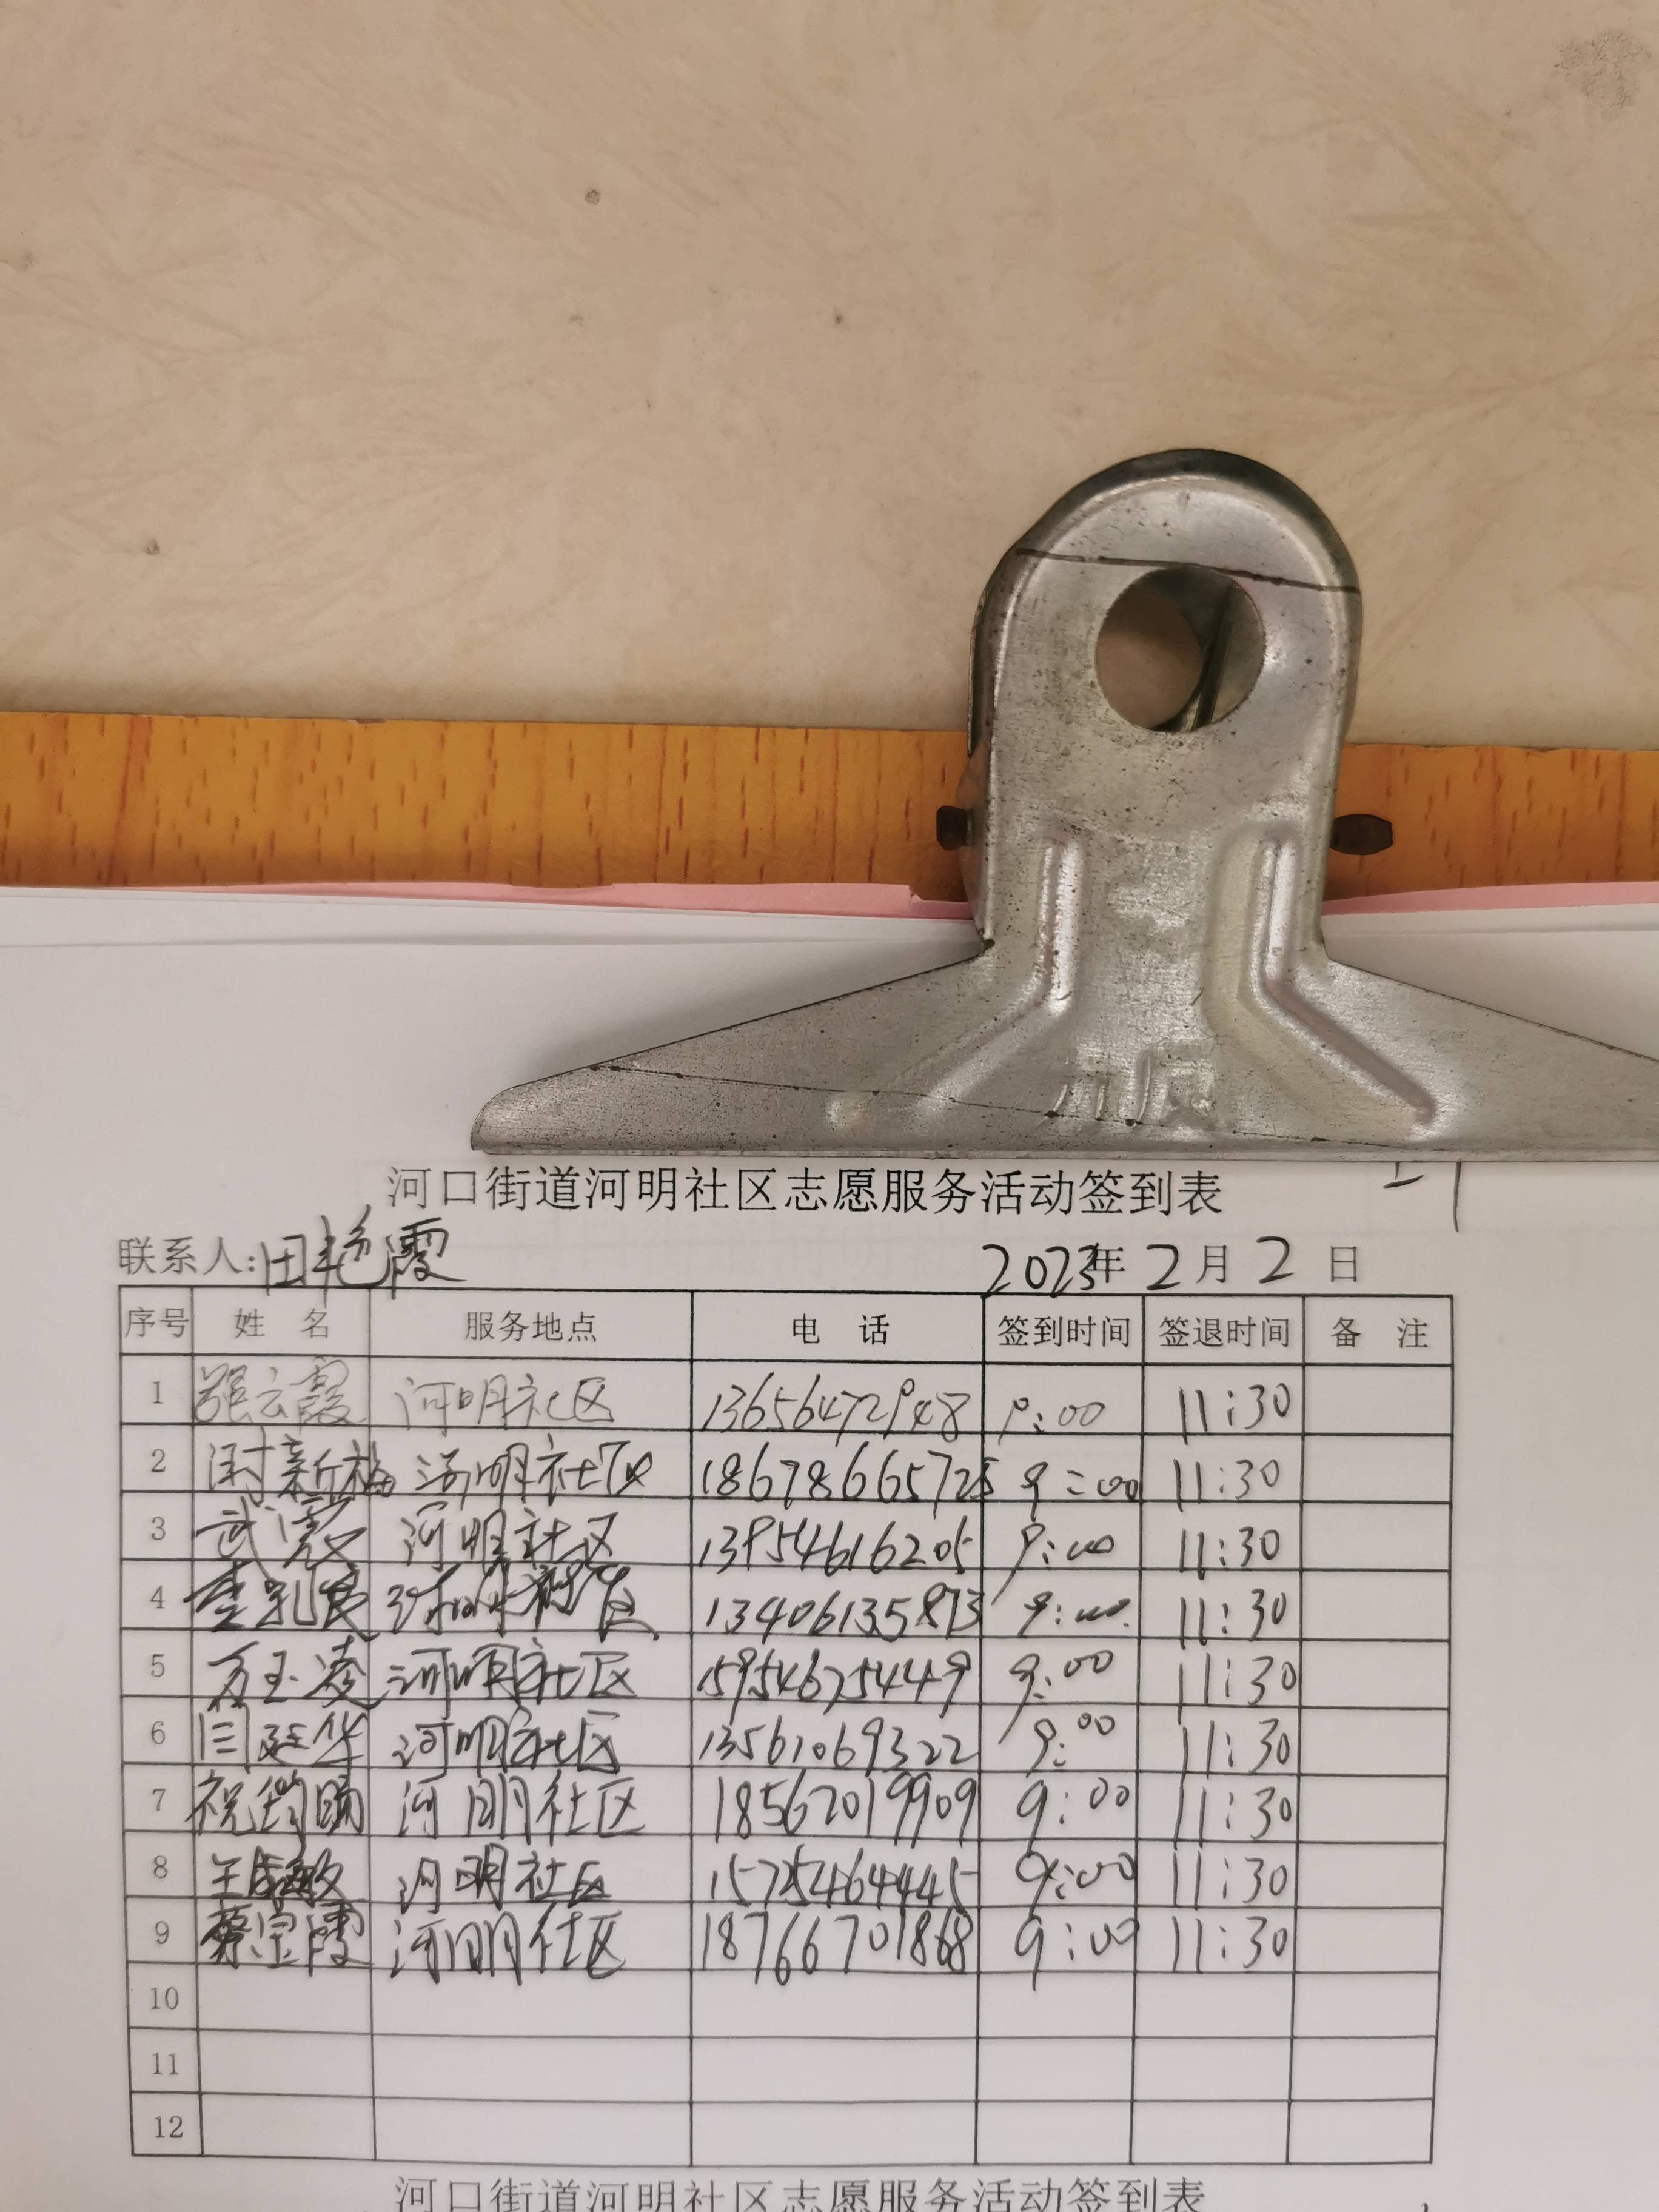 河口街道河明社区志愿服务活动签到表
联系人:田艳霞 2023年 2月 2日
序号 姓 名 服务地点 电 话 签到时间 签退时间 备 注
1 张云霞 河明社区 13656472948 9:00 11:30
2 新梅 河明社区 18678665725 9:00 11:30
3 武霞 河明社区 13954616205 9:00 11:30
4 河明社区 13406135873 9:00 11:30
5 万玉凌 河明社区 15954675449 9:00 11:30
6 闫延华 河明社区 13561069322 9:00 11:30
7 祝 河明社区 18562019909 9:00 11:30
8 王敏 河明社区 15725464445 9:00 11:30
9 蔡宝霞 河明社区 18766701868 9:00 11:30
10
11
12
河口街道河明社区志愿服务活动签到表